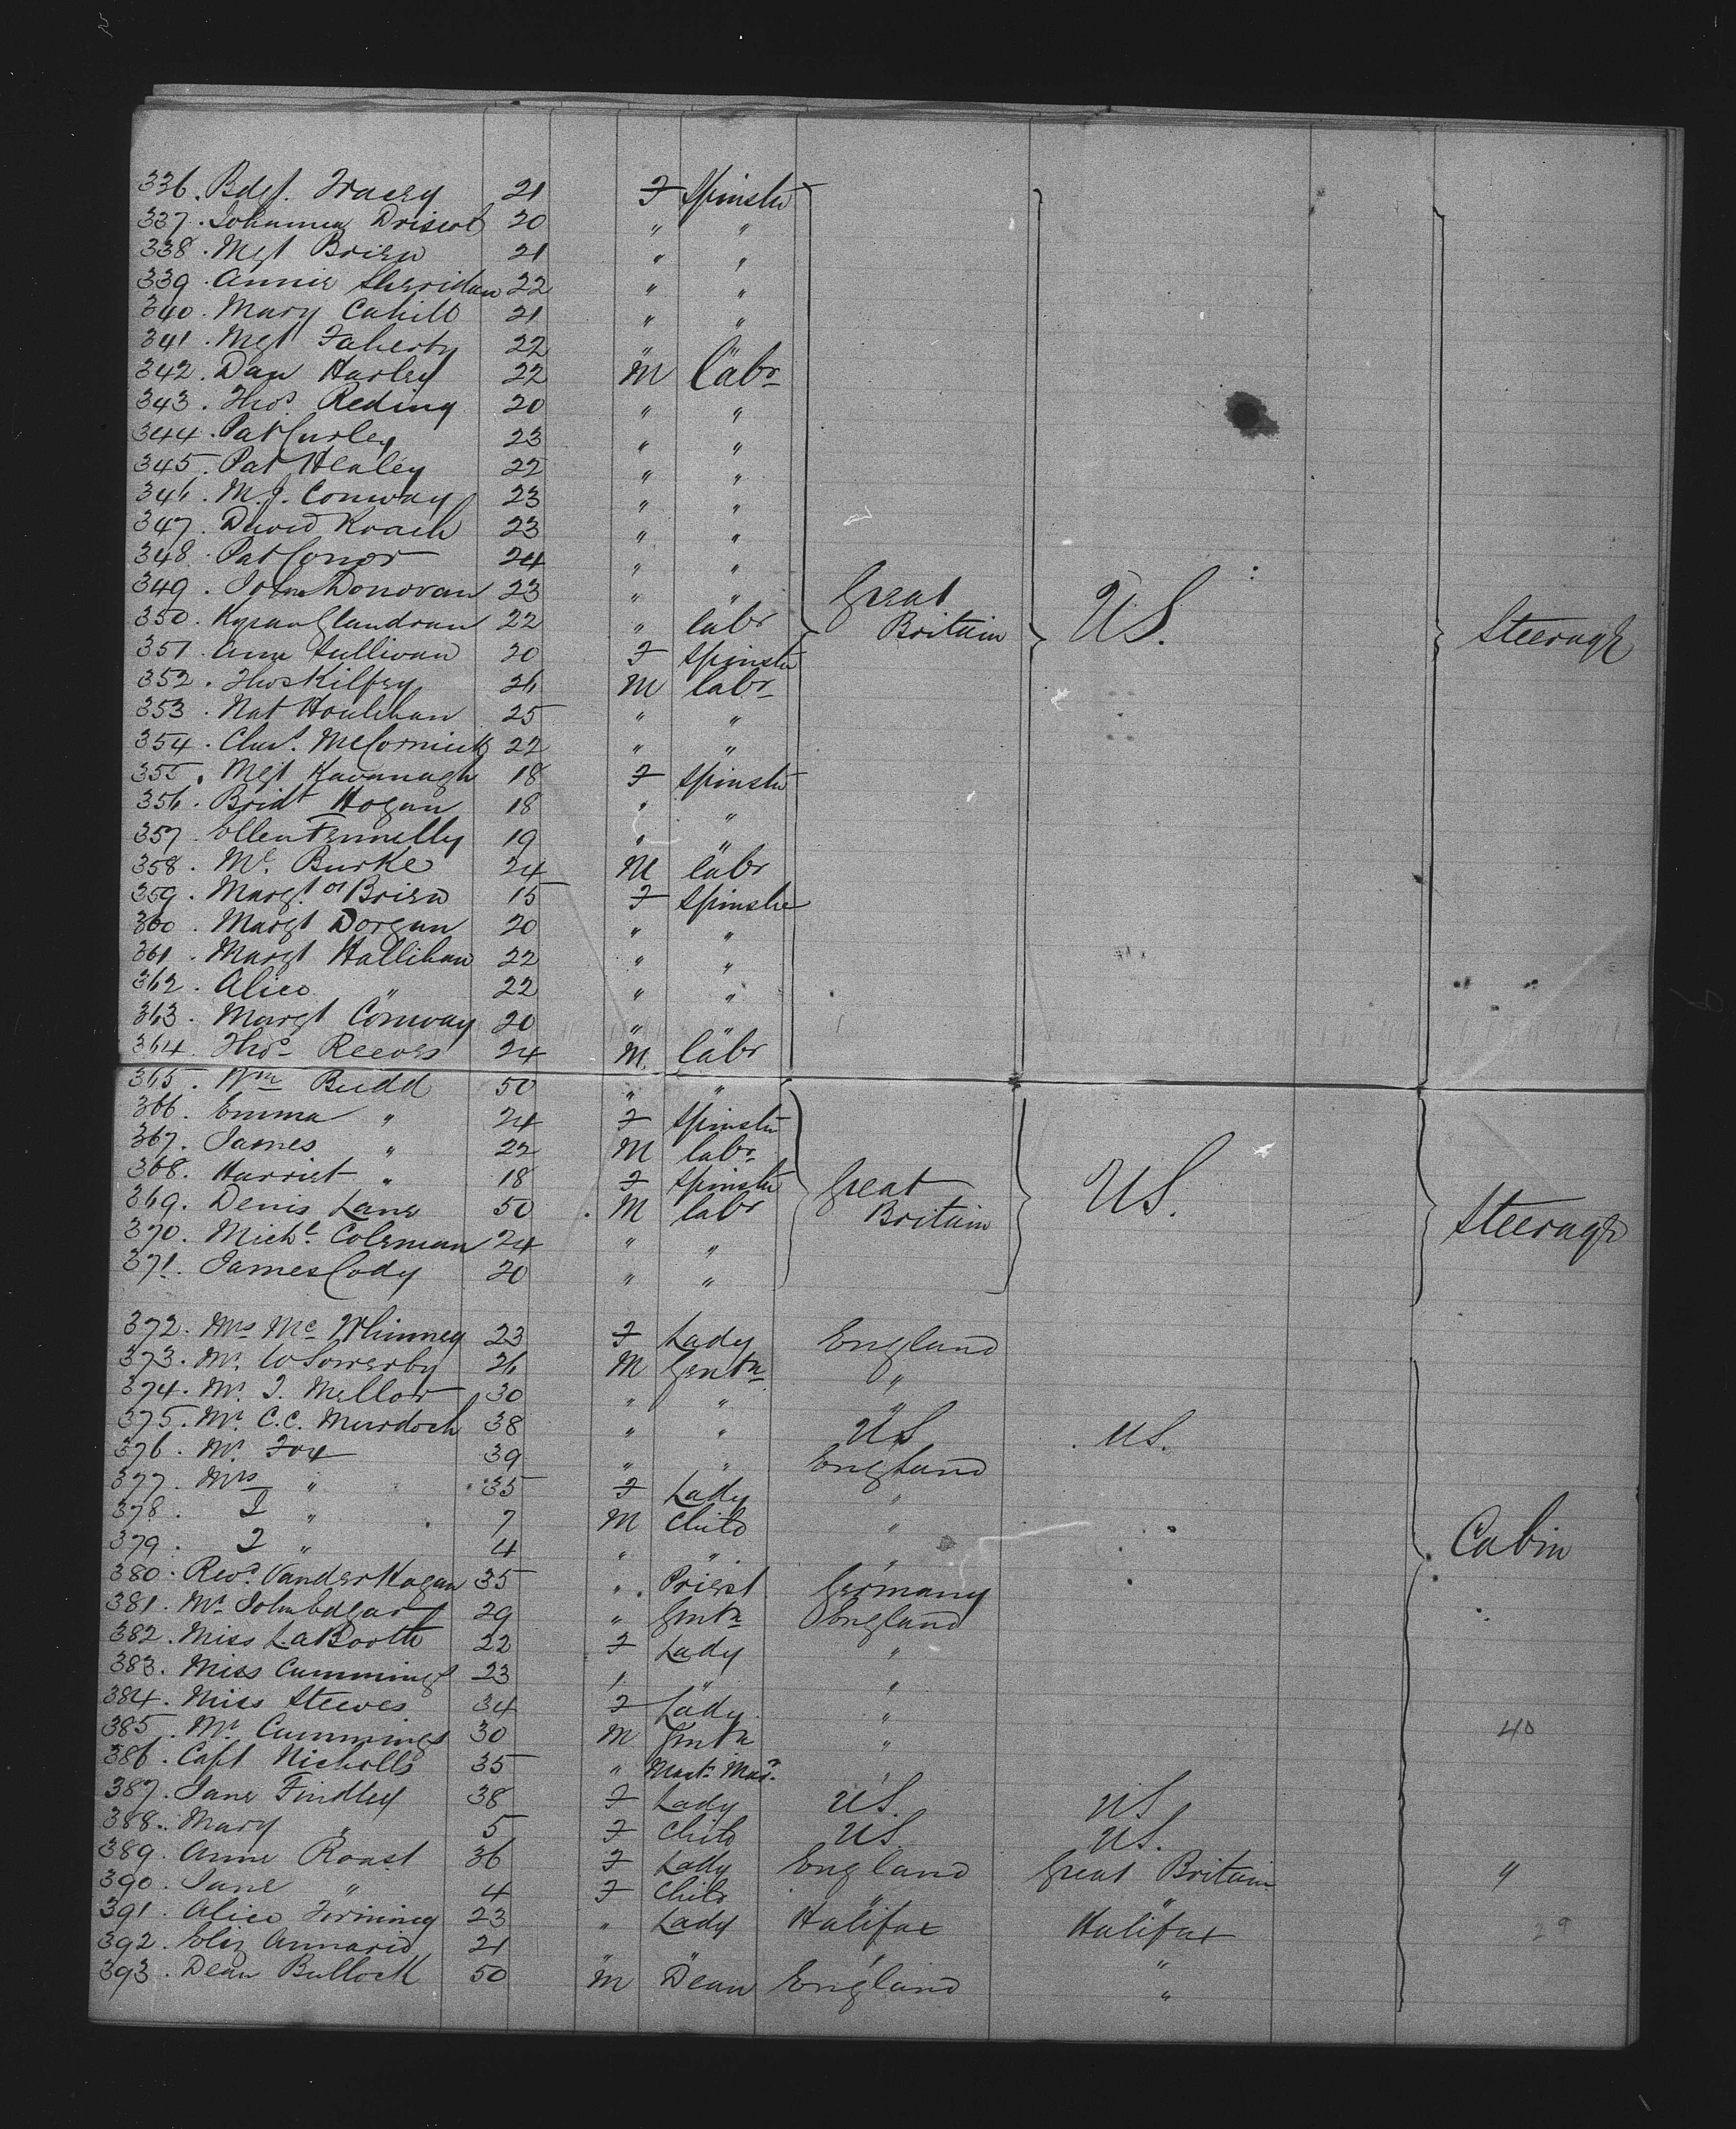 336. Bdgt. Tracey 21 F Spinstr
337. Johanna Driscol 20 " "
338. Mgt Brien 21 " "
339. Annie Sheridan 22 " "
340. Mary Cahill 21 " "
341. Mgt Faherty 22 "
342. Dan Harley 22 M labr
343. Thos. Reding 20 " "
344. Pat Curley 23 " "
345. Pat Healey 22 " "
346. M. J. Conway 23 " "
347. David Roach 23 " "
348. Pat Conor 24 " "
349. John Donovan 23 " " Great
350. Kyran Glandran 22 " labr Britain US. Steerage
351. Ann Sullivan 20 F Spinstr
352. Thos Kilfey 26 M labr
353. Nat Houlihan 25 " "
354. Chas. McCormick 22 " "
355. Mgt Kavanagh 18 F Spinstr
356. Bridt Hogan 18 " "
357. Ellen Fennelly 19 " "
358. Mc. Burke 24 M labr
359. Margt. O'Brien 15 F Spinster
360. Margt Dorgan 20 " "
361. Margt Hallihan 22 " "
362. Alice " 22 " "
363. Margt Conway 20 " "
364. Thos Reeves 24 M. labr
365. Wm Budd 50 " "
366. Emma " 24 F Spinstr
367. James " 22 M labr
368. Harriet " 18 F Spinstr Great US.
369. Denis Lane 50 M labr Britain Steerage
370. Michl Coleman 24 " "
371. James Cody 20 " "
372. Mrs McWhinney 23 F Lady England
373. Mr. W Sowerby 26 M Gentn "
374. Mr. J. Mellor 30 " " "
375. Mr C.C. Murdoch 38 " " US US.
376. Mr. Fox 39 " " England
377. Mrs " 35 F Lady "
378. J " 7 M Child " Cabin
379. J " 4 " " "
380. Revd. Vanderhagan 35 " Priest Germany
381. Mr John Edgar 29 " Gentn England
382. Miss La Booth 22 F Lady "
383. Miss Cummings 23 " " "
384. Miss Steeves 34 F Lady. "
385. Mr Cummings 30 M Gentn " 40
386. Capt Nicholls 35 " Mastr Marr. "
387. Jane Findley 38 F Lady US. US
388. Mary " 5 F Child US. US.
389. Anne Roast 36 F Lady England Great Britain "
390. Jane " 4 F Child " "
391. Alice 23 " Lady Halifax Halifax 29
392. Eliz 21 " " " "
393. Dean Bullock 50 M Dean England "